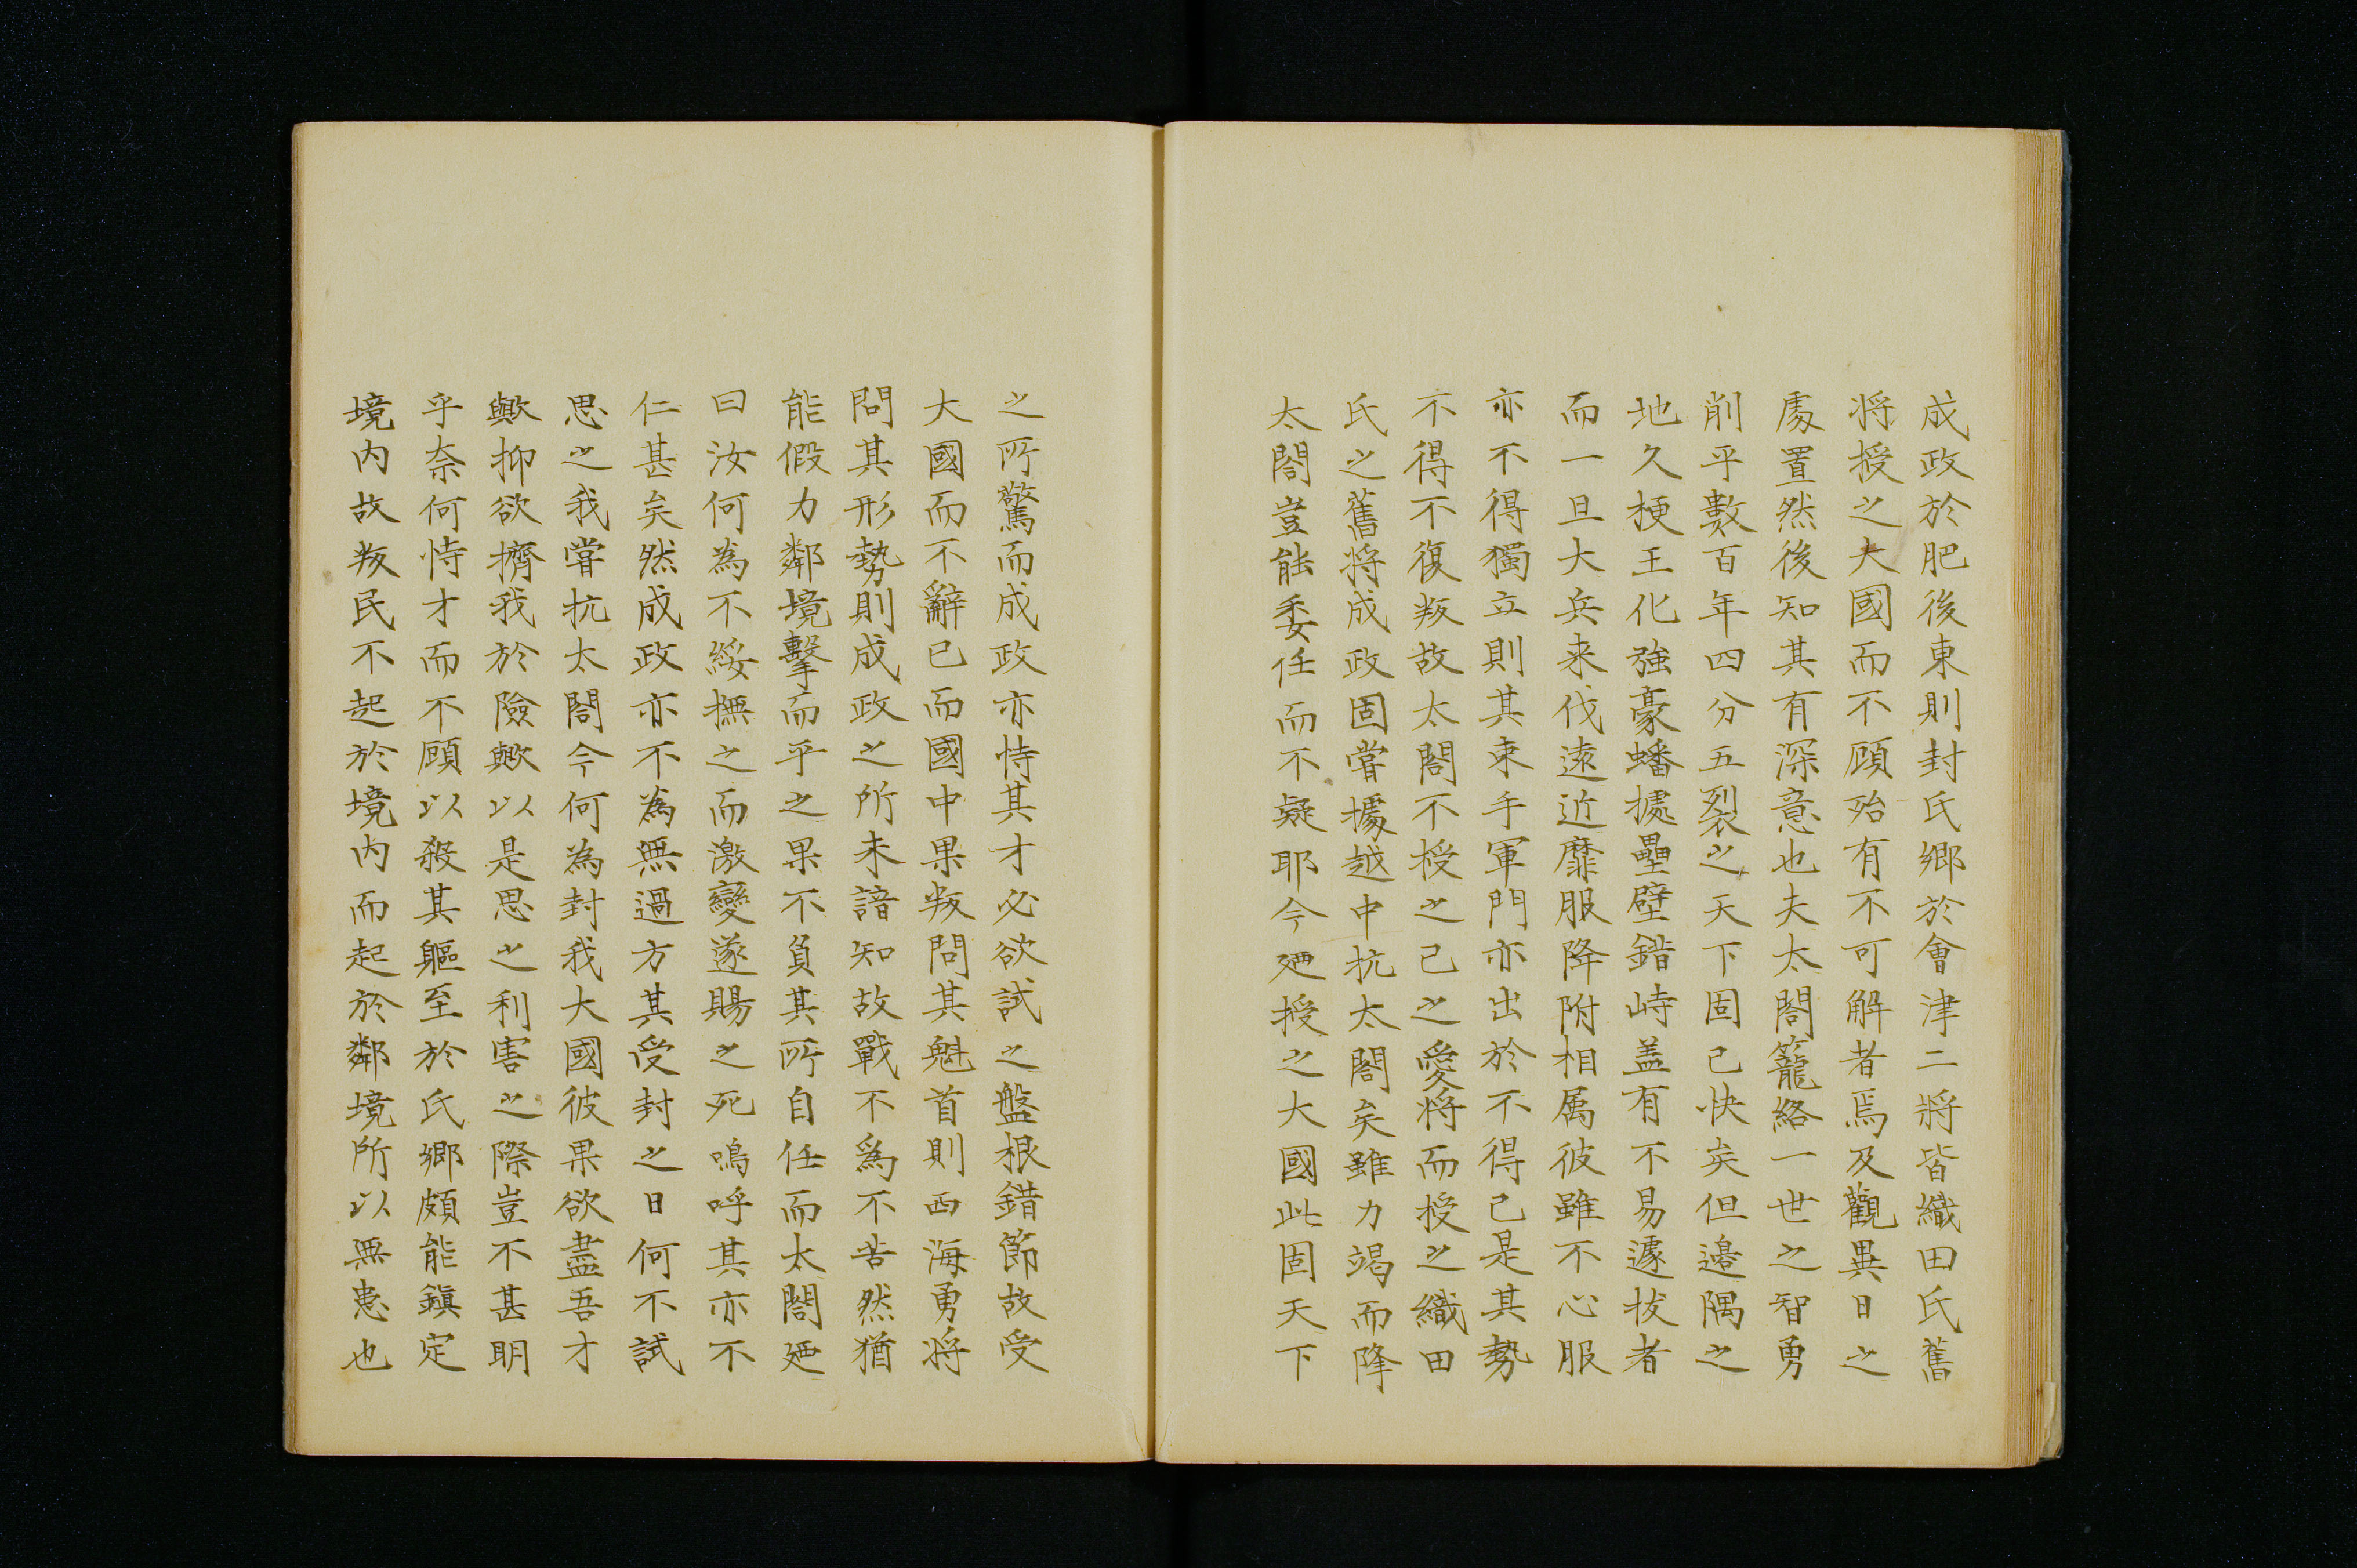 成政於肥後東則封氏郷於會津二將皆織田氏舊
将授之大國而不顧殆有不可解者焉及觀異日之
處置然後知其有深意也夫太閤籠絡一世之智勇
削平數百年四分五裂之天下固已快矣但邉隅之
地久梗王化強豪蟠據壘壁錯峙盖有不易遽拔者
而一旦大兵来伐遠近靡服降附相属彼雖不心服
亦不得獨立則其束手軍門亦出於不得已是其勢
不得不復叛故太閤不授之己之愛将而授之織田
氏之舊将成政固嘗據越中抗太閤矣雖力竭而降
太閤豈能委任而不疑耶今廼授之大國此固天下
之所驚而成政亦恃其才必欲試之盤根錯節故受
大國而不辭已而國中果叛問其魁首則西海勇将
問其形勢則成政之所未諳知故戰不爲不苦然猶
能假力鄰境擊而平之果不負其所自任而太閤廼
曰汝何為不綏撫之而激變遂賜之死嗚呼其亦不
仁甚矣然成政亦不為無過方其受封之日何不試
思之我嘗抗太閤今何為封我大國彼果欲盡吾才
歟抑欲擠我於險歟以是思之利害之際豈不甚明
乎奈何恃才而不顧以殺其軀至於氏郷頗能鎮定
境内故叛民不起於境内而起於鄰境所以無患也